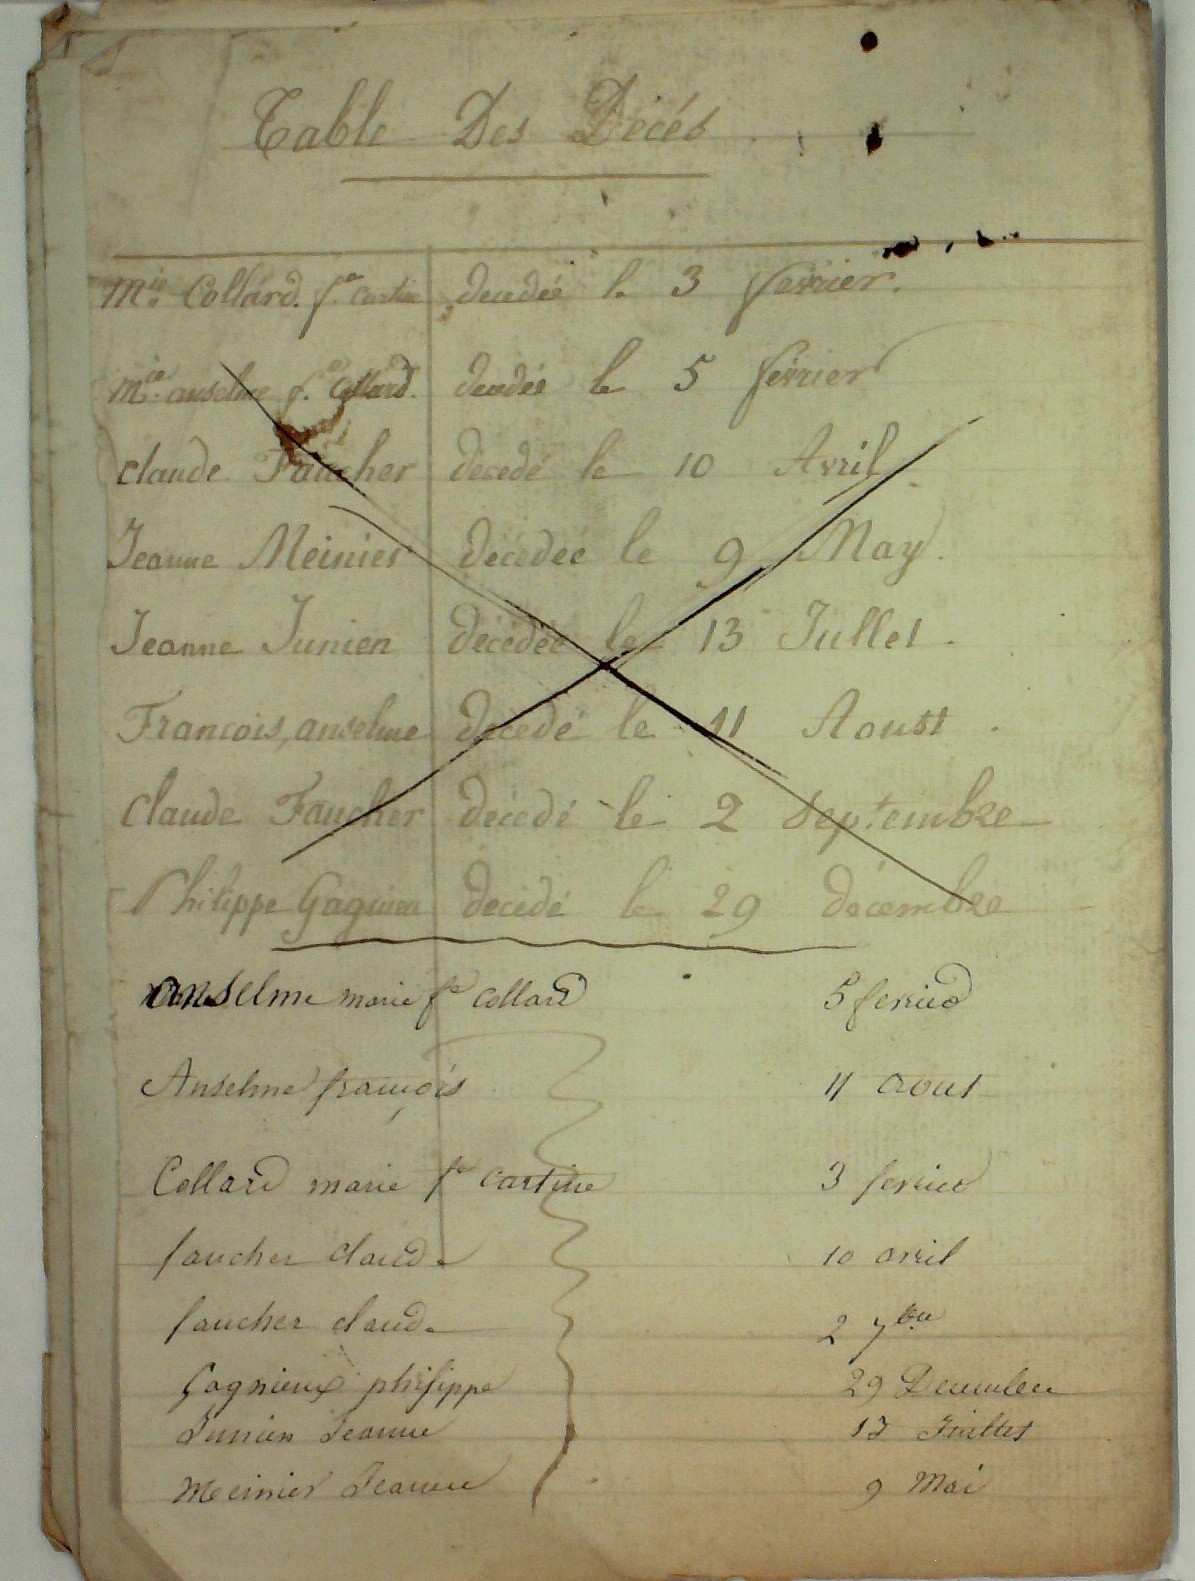 Table Des Décés
Mie Collard. fe Cartine decedée le 3 fevrier.
Mie anselme fe Collard. decedée le 5 fevrier
claude Faucher décedé le 10 Avril
Jeanne Meinier décédée le 9 May.
Jeanne Junien décédée le 13 Jullet.
Francois, anselme décédé le 11 Aoust.
Claude Faucher décédé le 2 Septembre
Philippe Gagnieu décédé le 29 décembre
anselme marie fe Collard 5 fevrier
Anselme françois 11 aout
Collard marie fe Cartine 3 fevrier
faucher claude 10 avril
faucher claude 2 7bre
Gagnieux philippe 29 Decembre
Junien Jeanne 13 Juillet
Meinier Jeanne 9 Mai